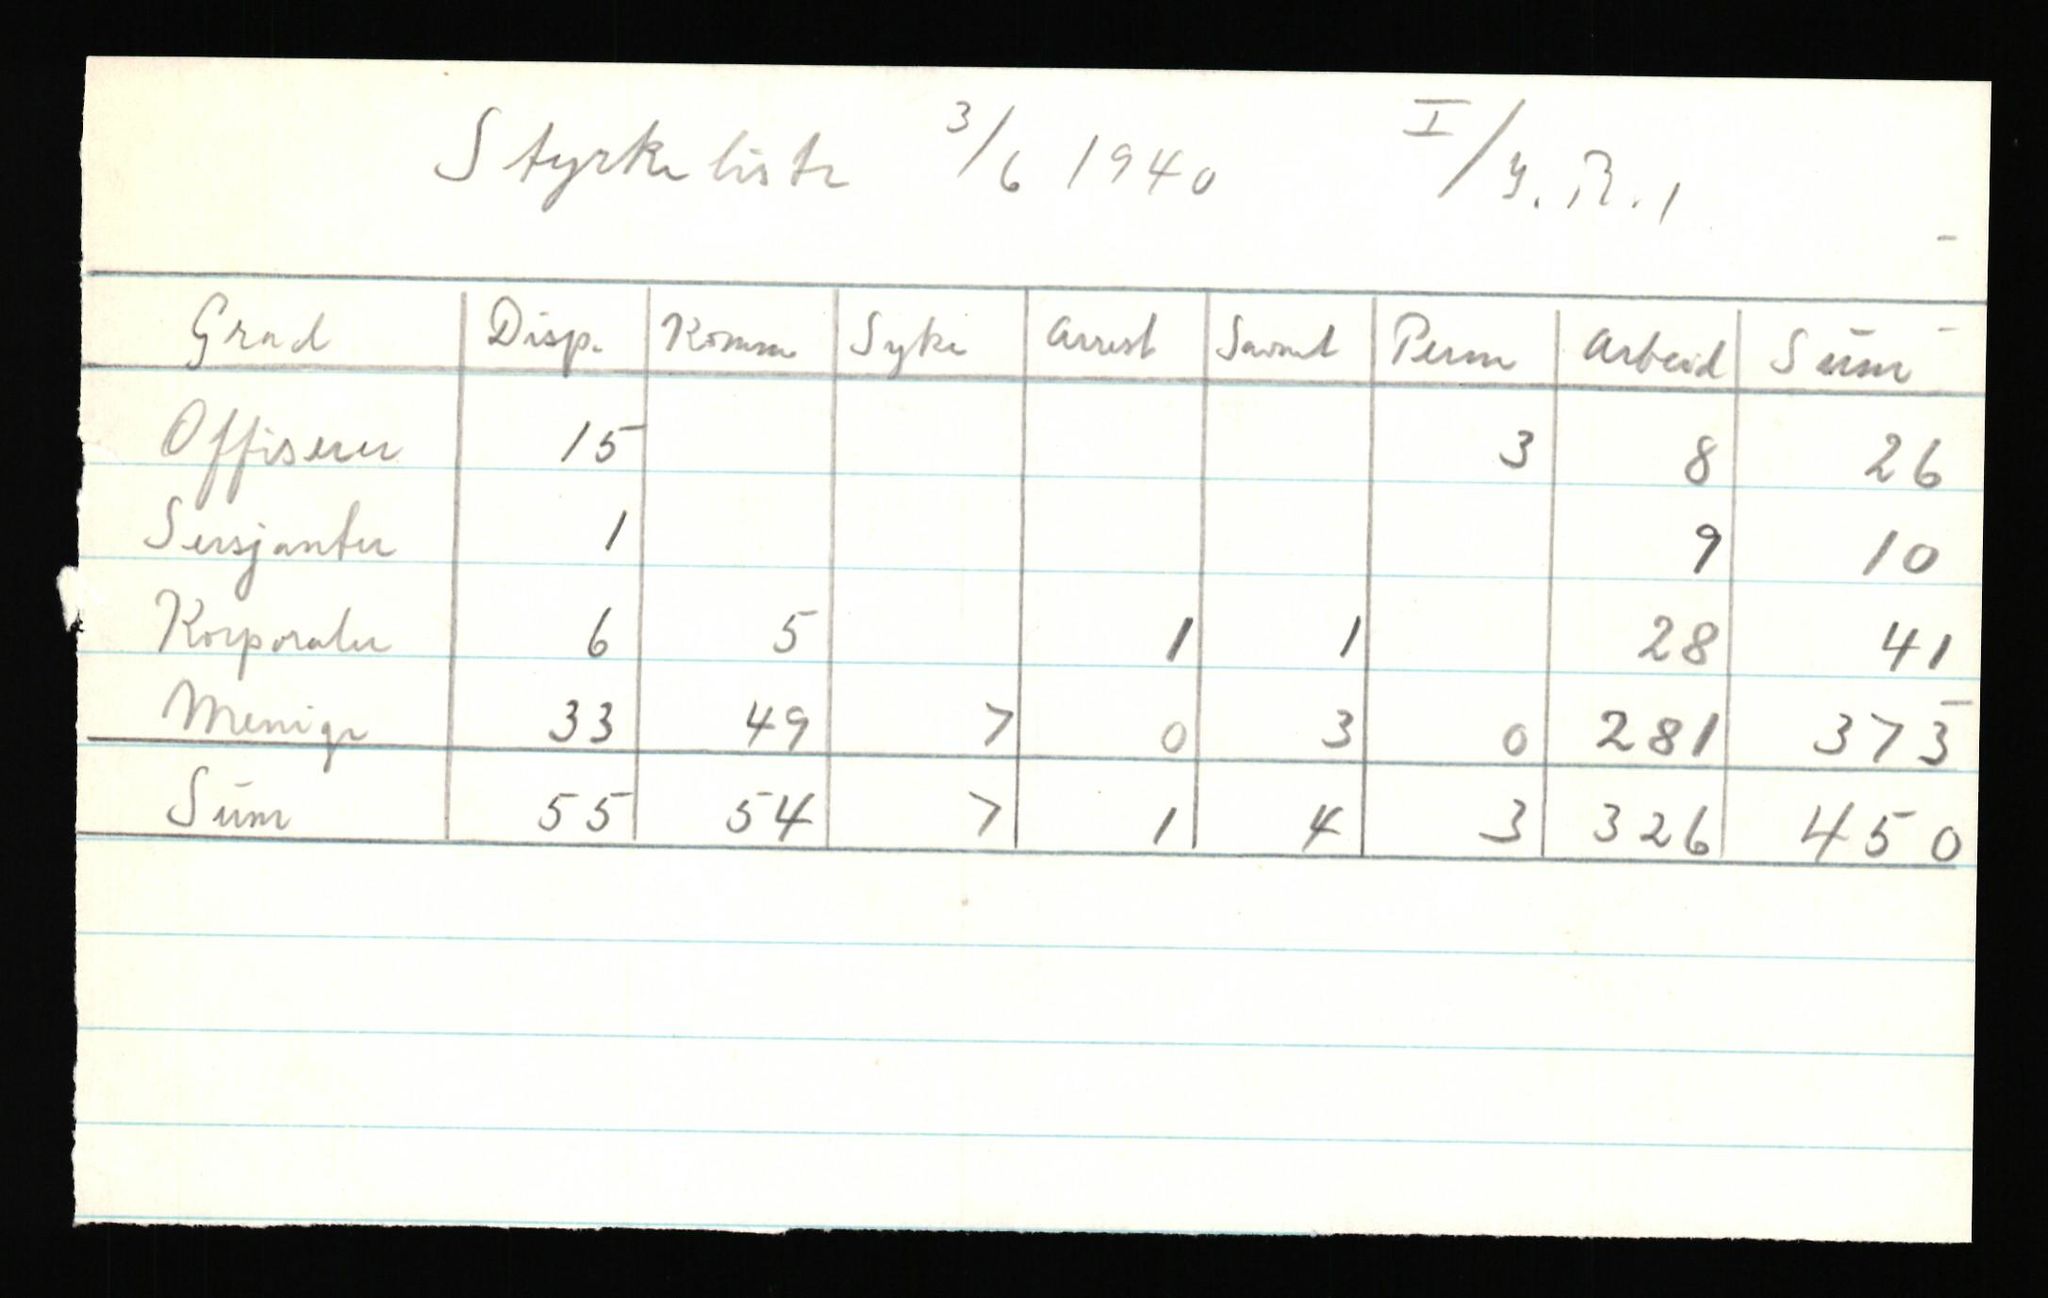 Styrkeliste 3/6 1940 I/y.R.1
Grad Disp. Komm Syke Arrest Savnet Perm Arbeid Sum
Offiserer 15 3 8 26
Sersjanter 1 9 10
Korporaler 6 5 1 1 28 41
Menige 33 49 7 0 3 0 281 373
Sum 55 54 7 1 4 3 326 450